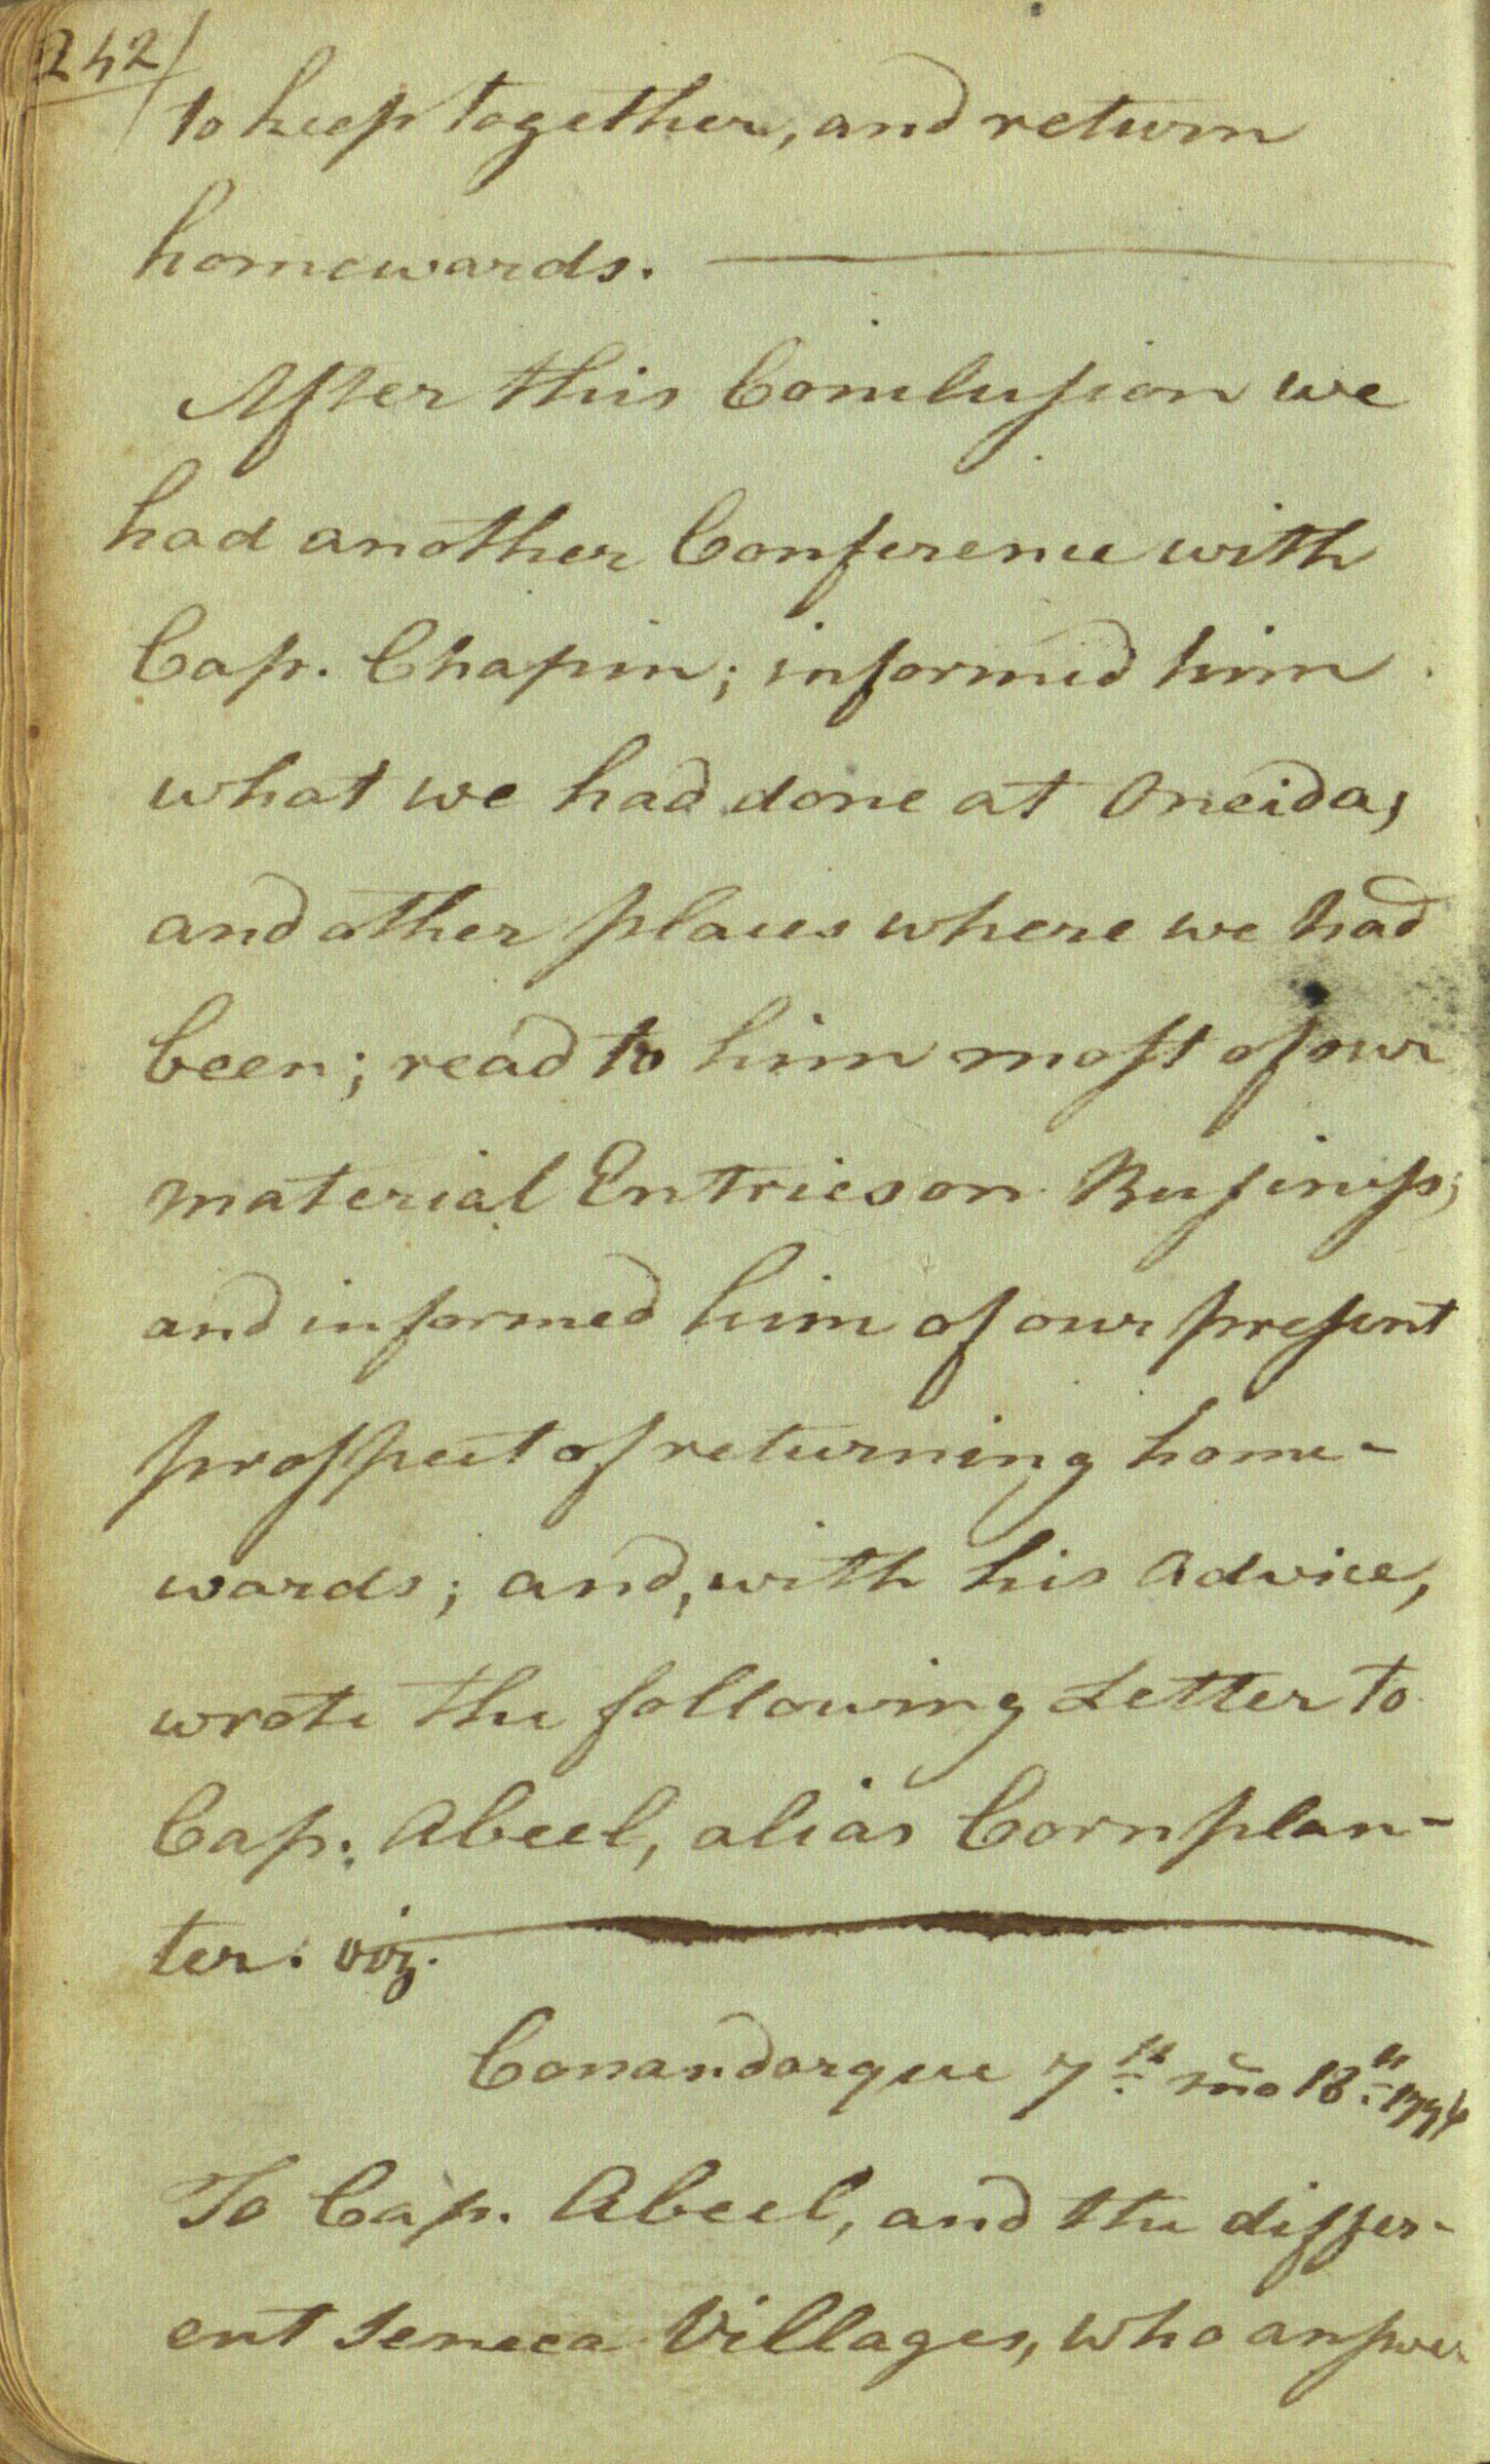 242/
to keep together, and return
homewards.
After this Conclusion we
had another Conference with
Cap. Chapin; informed him
what we had done at Oneida,
and other places where we had
been; read to him most of our
material Entries on Business,
and informed him of our present
prospect of returning home-
wards; and, with his Advice,
wrote the following Letter to
Cap. Abeel, alias Cornplan-
ter. viz.
Conandargue 7th mo 18th 1794
To Cap. Abeel, and the differ-
ent Seneca Villages, who answer